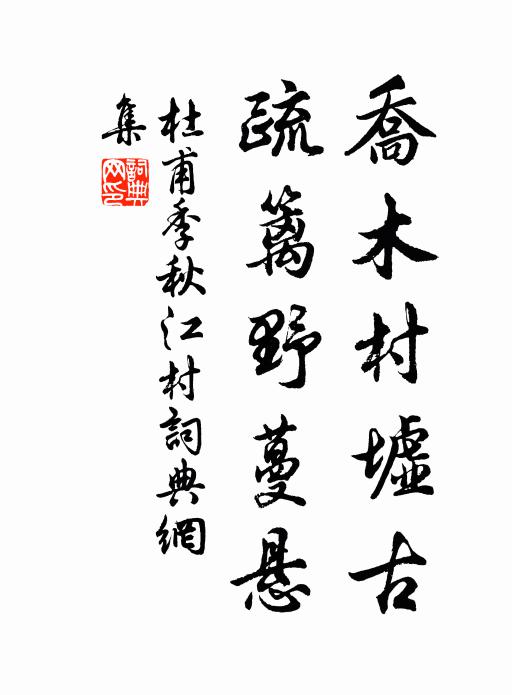 喬木村墟古
疏篱野蔓悬
杜甫季秋江村詞典網
集
詞典
网印